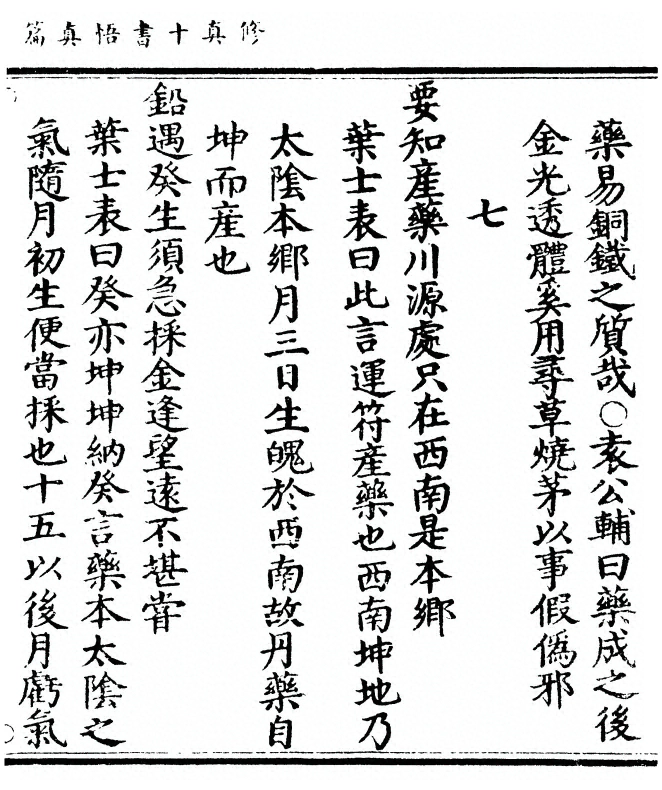 修真十書悟真篇
藥易銅鐵之質哉○袁公輔曰藥成之後
金光透體奚用尋草燒茅以事假偽邪
七
要知産藥川源處只在西南是本鄉
葉士表曰此言運符産藥也西南坤地乃
太陰本鄉月三日生魄於西南故丹藥自
坤而産也
鉛遇癸生須急採金逢望遠不堪嘗
葉士表曰癸亦坤坤納癸言藥本太陰之
氣隨月初生便當採也十五以後月虧氣